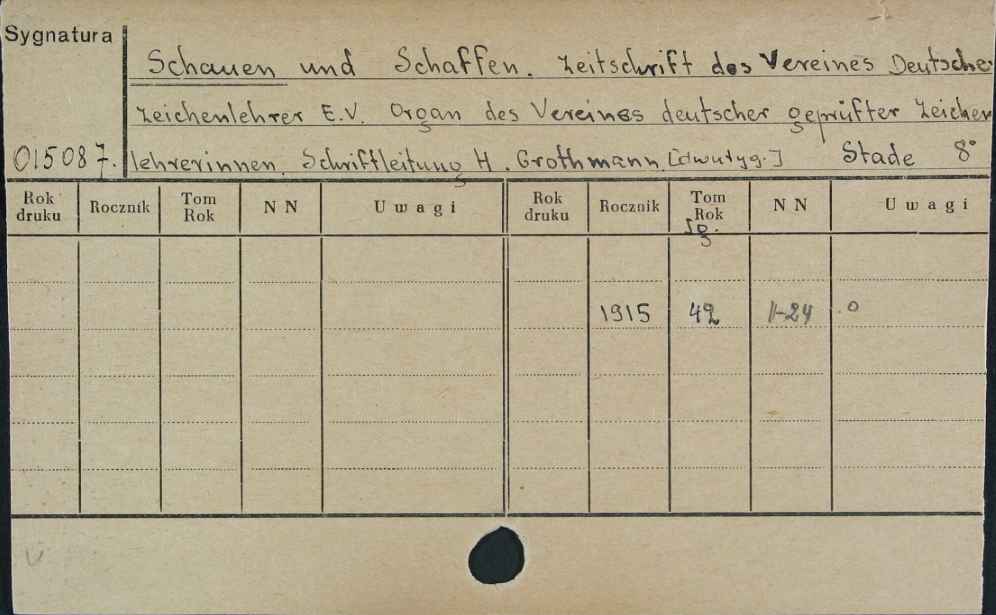 Sygnatura
Schauen und Schaffen. Zeitschrift des Vereines Deutscher
Zeichenlehrer E.V. Organ des Vereines deutscher geprüfter Zeichen
015087. lehrerinnen. Schriftleitung H. Grothmann. [dwutyg.] Stade 8°
Rok druku Rocznik Tom Rok NN Uwagi Rok druku Rocznik Tom Rok NN Uwagi
Jg.
1915 42 1-24 o